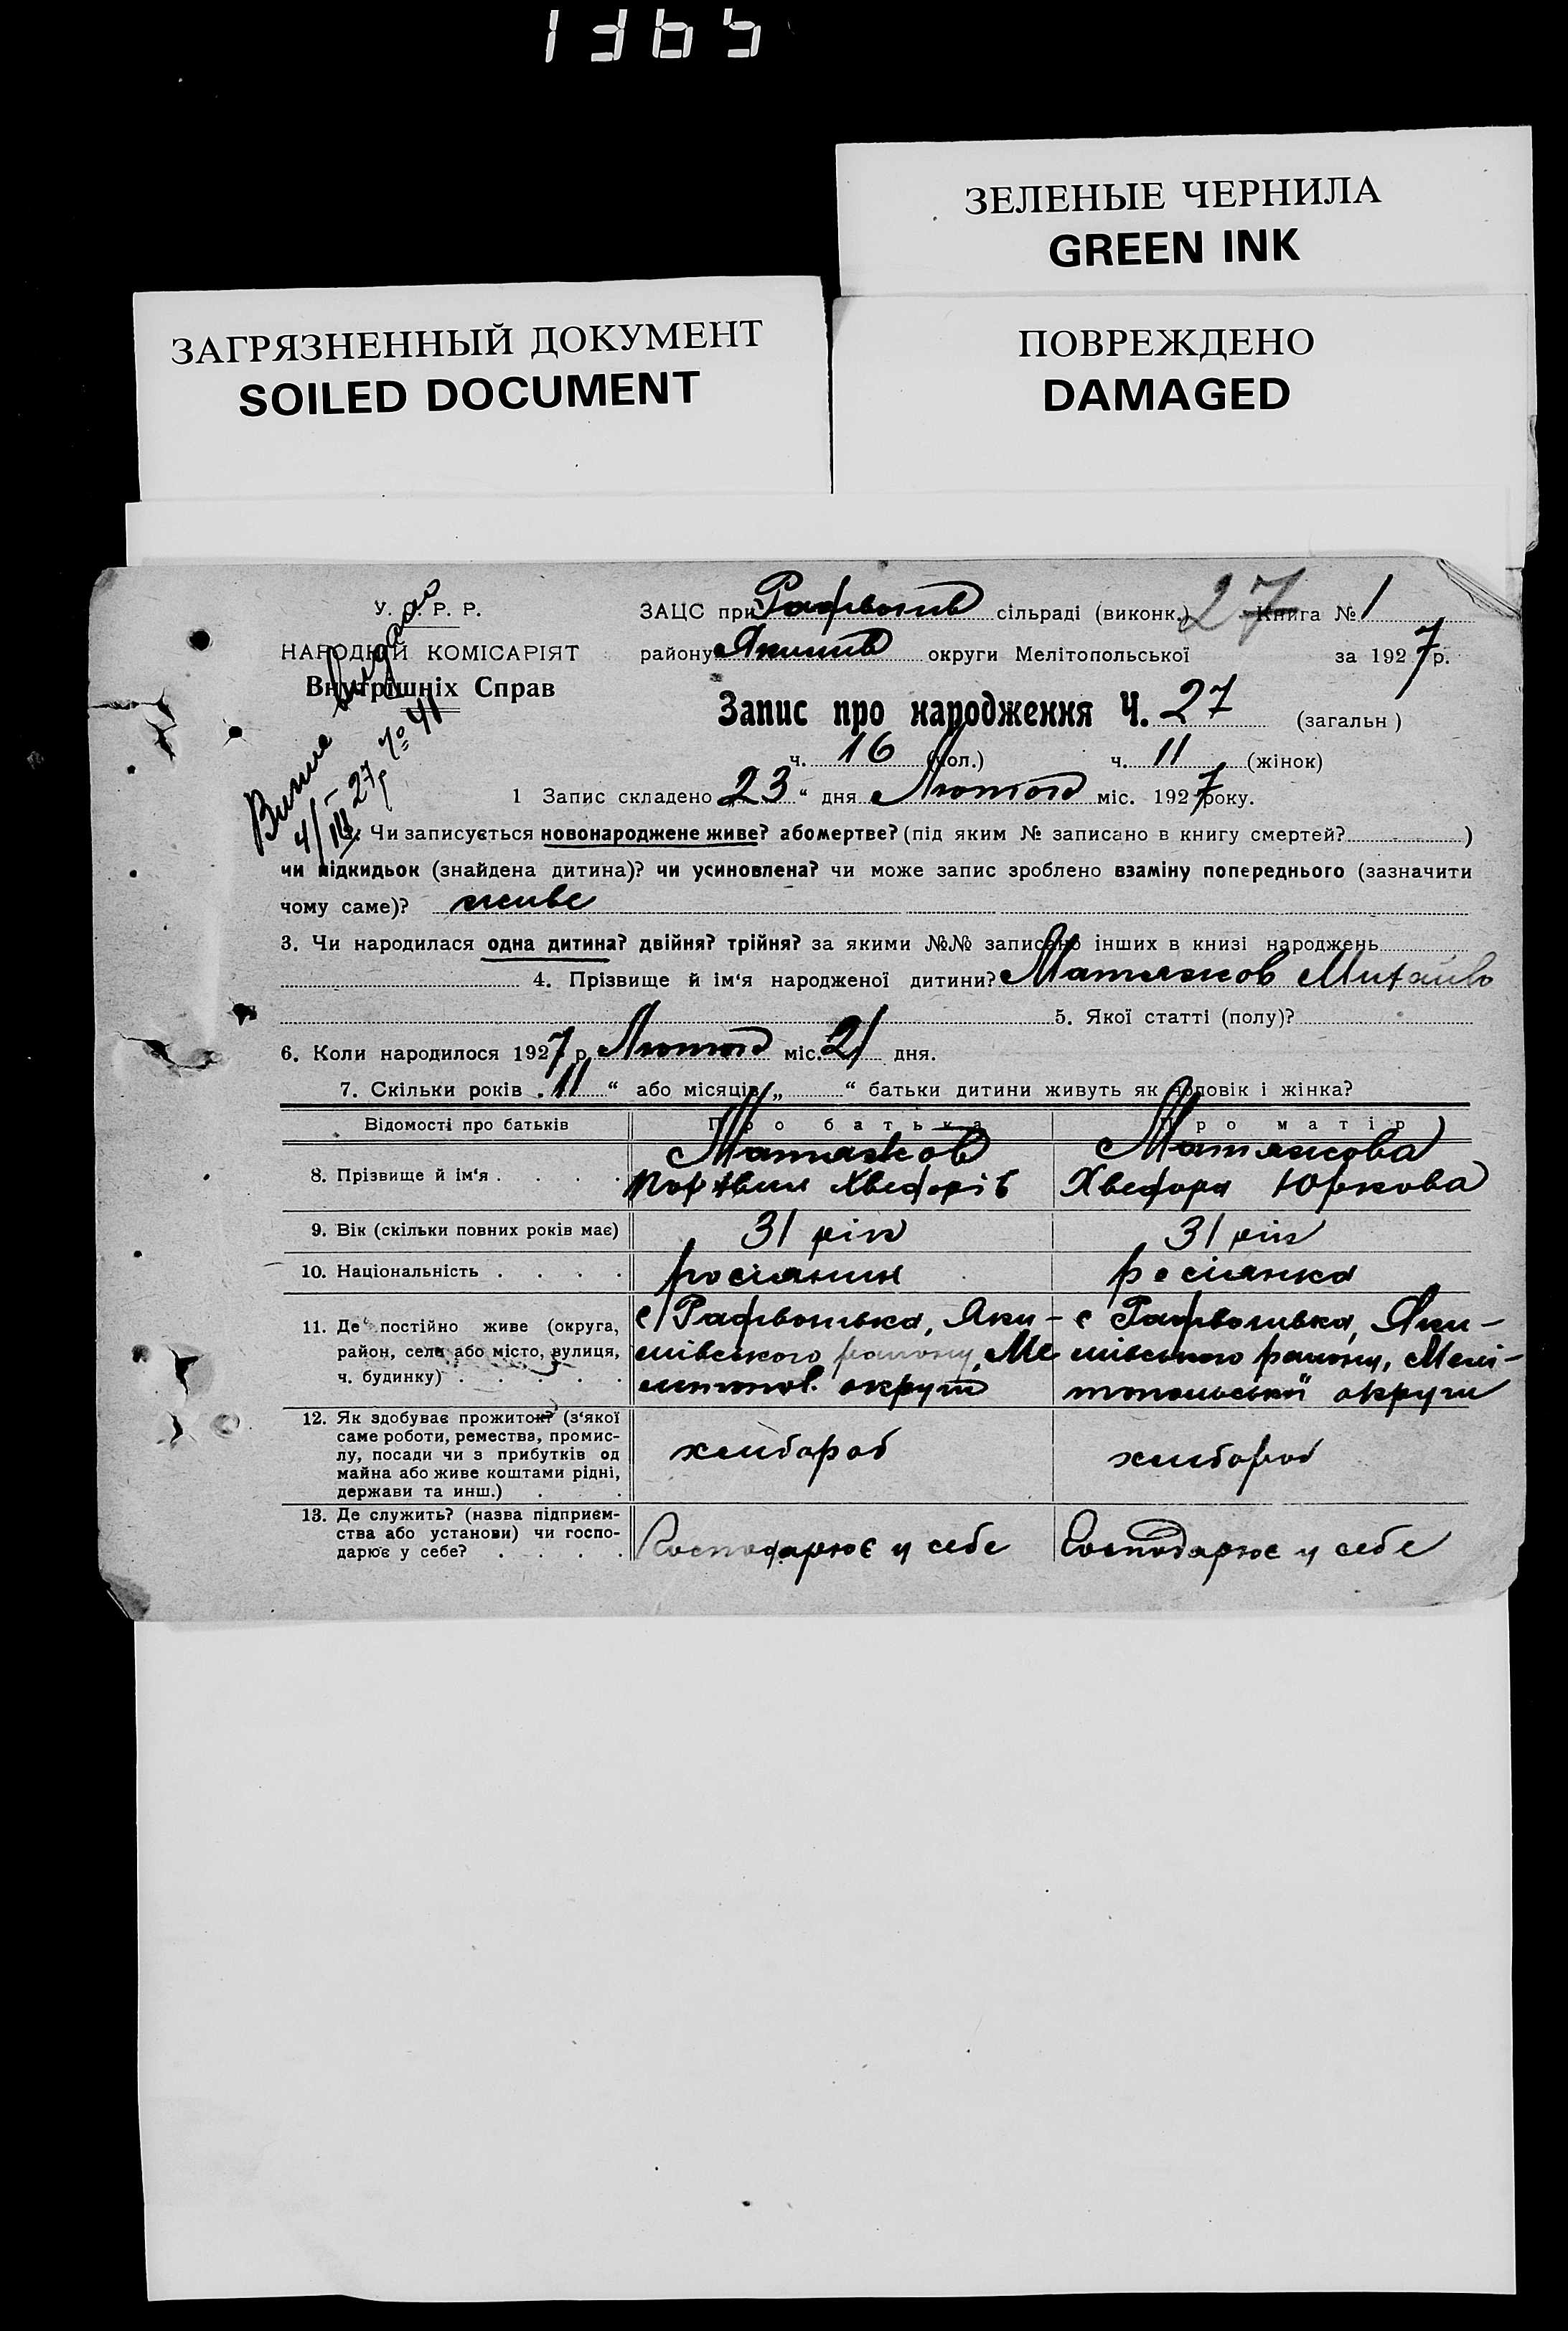 1365
ЗЕЛЕНЫЕ ЧЕРНИЛА
GREEN INK
ЗАГРЯЗНЕННЫЙ ДОКУМЕНТ
SOILED DOCUMENT
ПОВРЕЖДЕНО
DAMAGED
У. Р. Р.
НАРОДНІЙ КОМІСАРІЯТ
Внутрішніх Справ
4/III-27р № 41
ЗАЦС при сільраді (виконк.) 27 Книга № 1
району Якимів округи Мелітопольської за 1927 р.
Запис про народження Ч. 27 (загальн)
ч. 16 (чол.) ч. 11 (жінок)
1 Запис складено 23 " дня Лютого міс. 1927 року.
2. Чи записується новонароджене живе? або мертве? (під яким № записано в книгу смертей? )
чи підкидьок (знайдена дитина)? чи усиновлена? чи може запис зроблено взаміну попереднього (зазначити
чому саме)? живе
3. Чи народилася одна дитина? двійня? трійня? за якими №№ записано інших в книзі народжень
4. Прізвище й ім'я народженої дитини? Матяжков Михайло
5. Якої статті (полу)?
6. Коли народилося 1927 р. Лютого міс. 21 дня.
7. Скільки років . 11 " або місяців „ " батьки дитини живуть як чоловік і жінка?
Відомості про батьків Про батька Про матір
8. Прізвище й ім'я . . . . Матяжков Хведорів Матяжкова Хведора Юркова
9. Вік (скільки повних років має) 31 рік 31 рік
10. Національність . . . . росіянин росіянка
11. Де постійно живе (округа,
район, село або місто, вулиця,
ч. будинку) . . . . .
Якимівського району, Мелітопол. округи
Якимівського району, Мелітопольської округи
12. Як здобуває прожиток? (з'якої
саме роботи, ремества, промис-
лу, посади чи з прибутків од
майна або живе коштами рідні,
держави та инш.) . .
хлібороб хлібороб
13. Де служить? (назва підприєм-
ства або установи) чи госпо-
дарює у себе? . . . .
Господарює у себе Господарює у себе